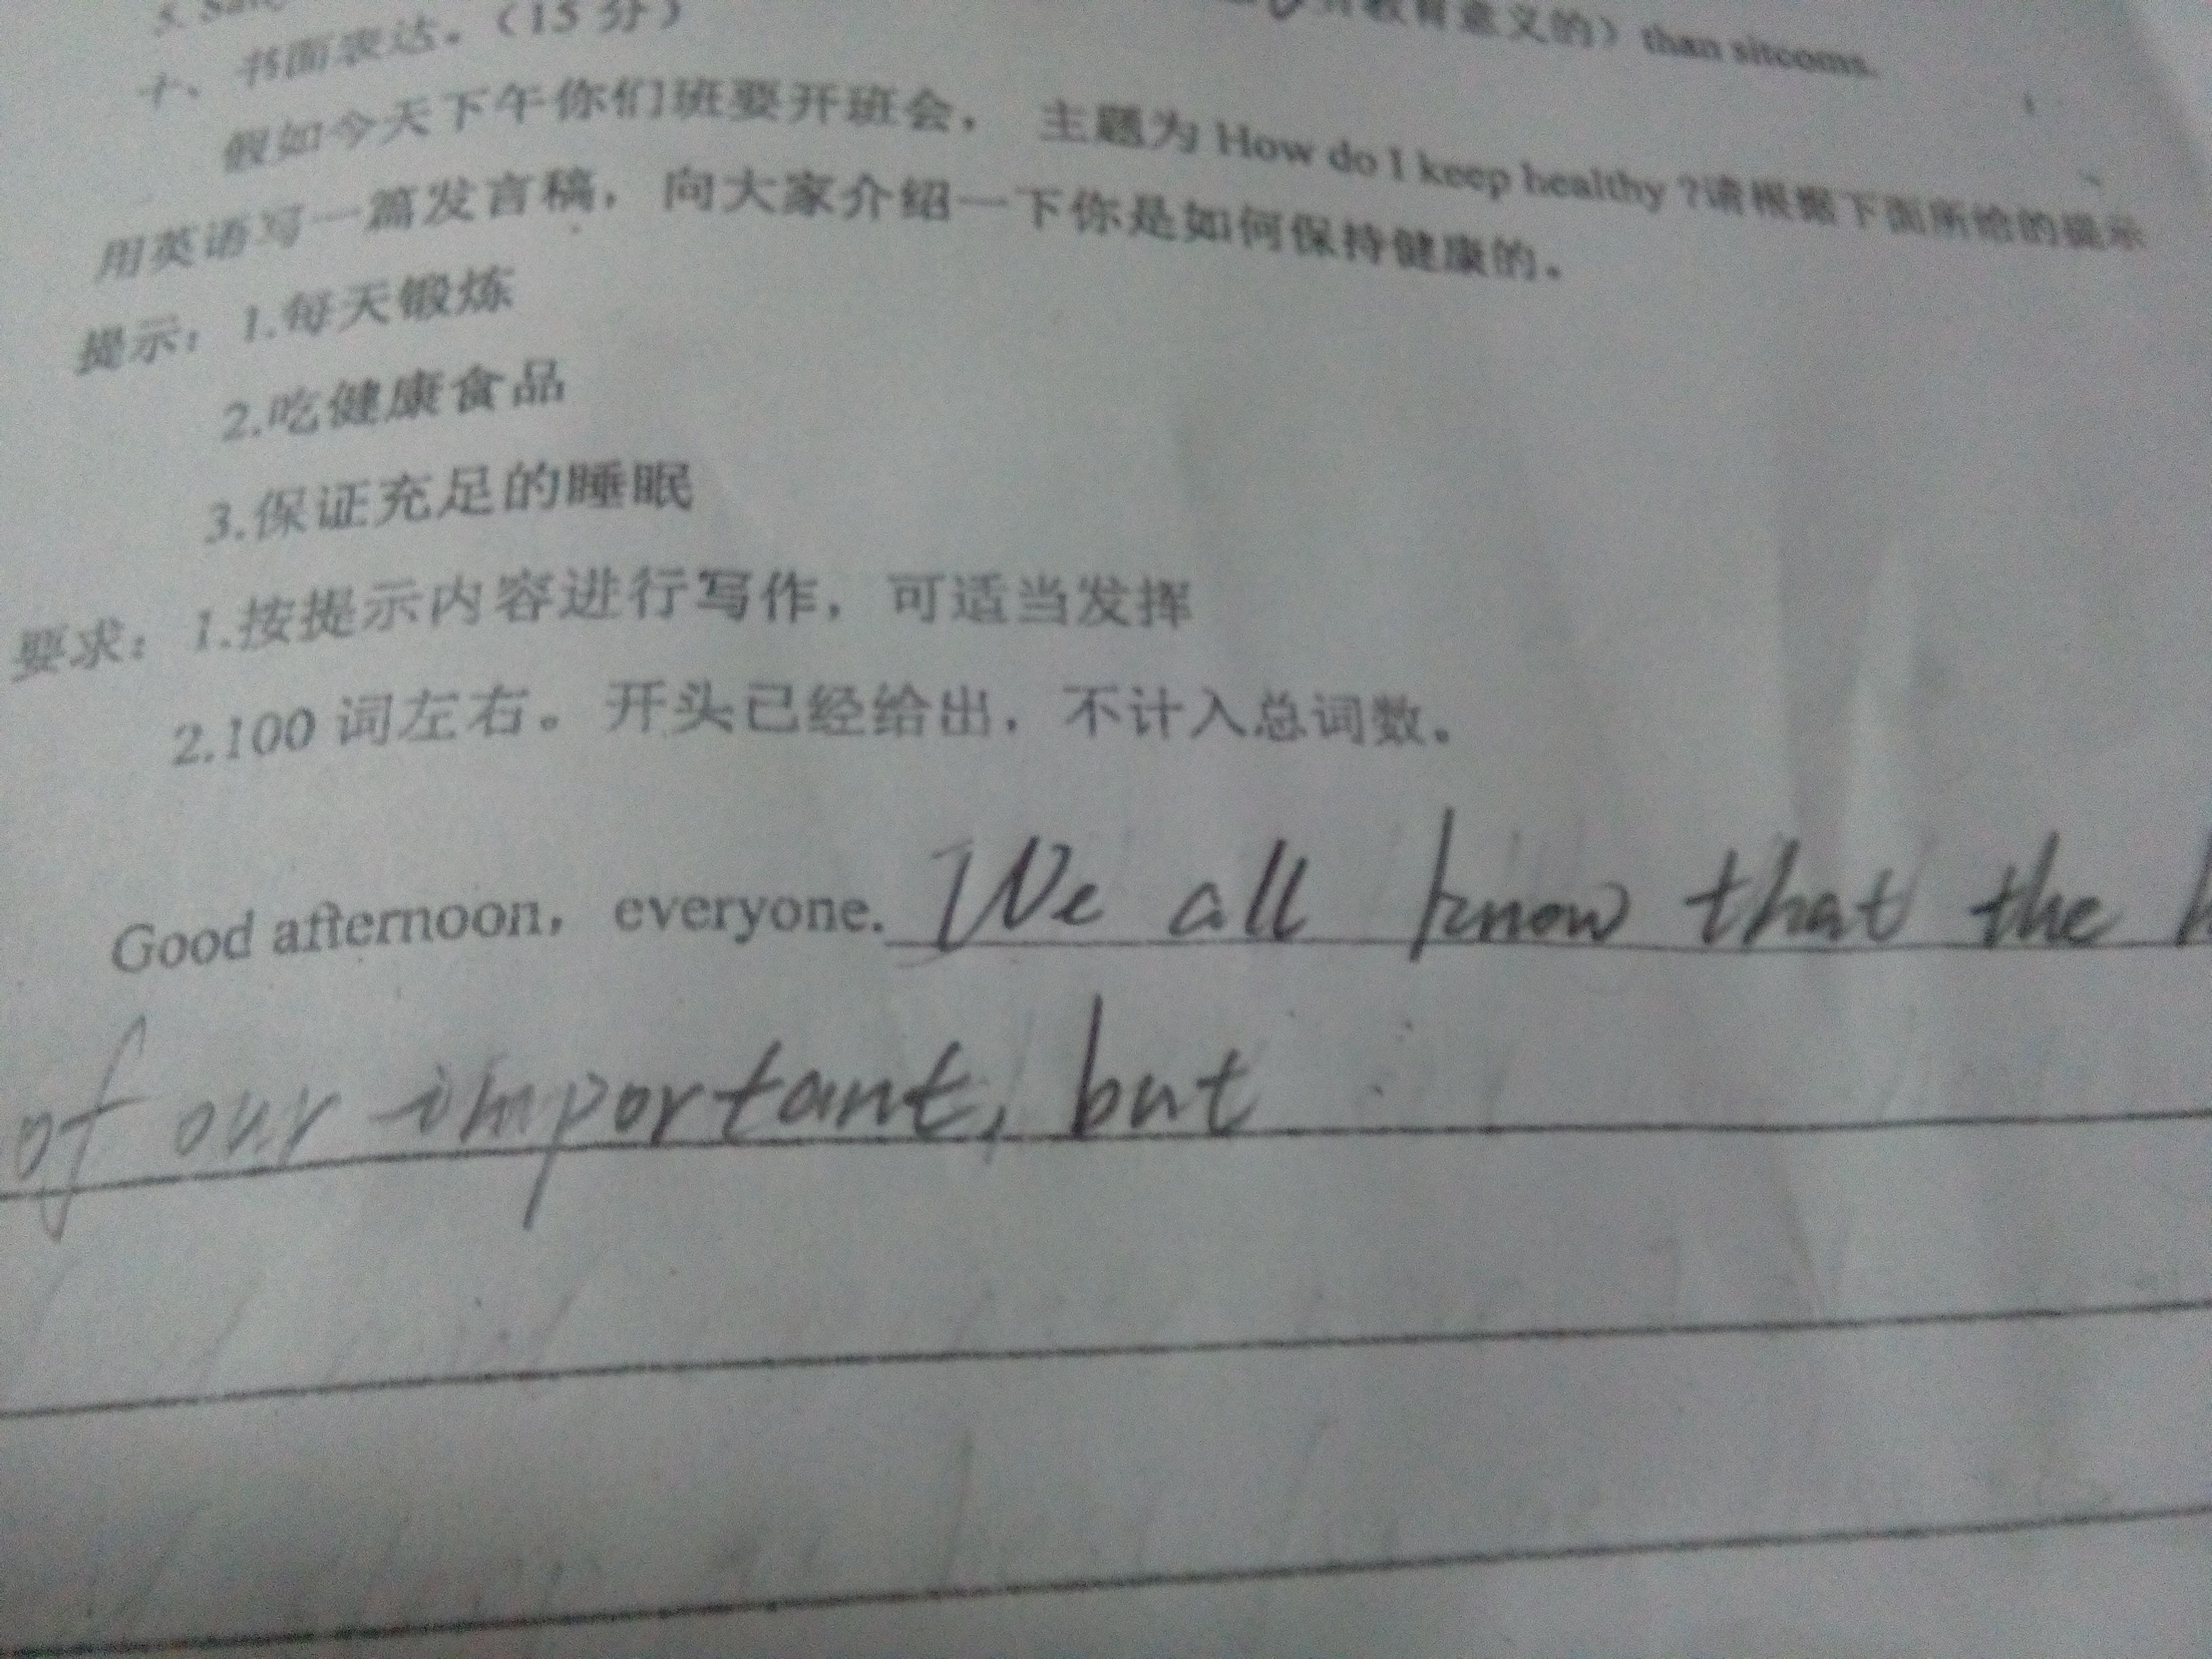 十、书面表达。（15 分）
教育意义的）than sitcoms.
假如今天下午你们班要开班会， 主题为 How do I keep healthy ?请根据下面所给的提示
用英语写一篇发言稿，向大家介绍一下你是如何保持健康的。
提示：1.每天锻炼
2.吃健康食品
3.保证充足的睡眠
要求：1.按提示内容进行写作，可适当发挥
2.100 词左右。开头已经给出，不计入总词数。
Good afternoon， everyone. We all know that the
of our important, but